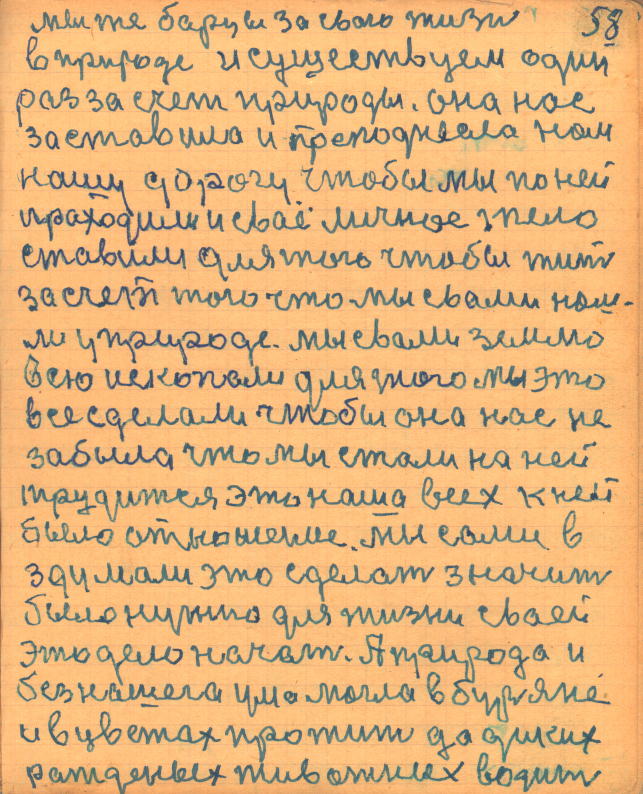 58
мы же барцы за свою жизн
в природе и существуем один
раз за счет природы. она нас
заставила и преподнесла нам
нашу дорогу чтобы мы по ней
праходили и сваё личное тело
ставили для того чтобы жит
засчет того что мы свами наш-
ли у природе. мы свами землю
всю ископали для того мы это
все сделали чтобы она нас не
забыла что мы стали на ней
трудится это наша всех к ней
было отношение. мы сами в
здумали это сделат значит
было нужно для жизни сваей
это дело начат. А природа и
без нашега ума могла в буряне
и в цветах прожит да диких
ражденых животных водит